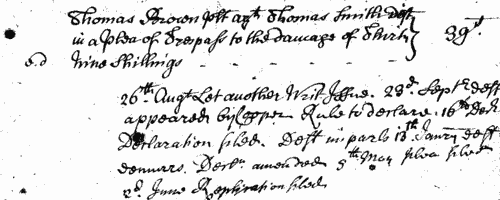 Thomas Brown plt agt Thomas Smith Deft
in a Plea of Trespass to the damage of Thirty } 39s.
e.d Nine Shillings
26th. Augt Let another Writ Issue. 23d. Septr deft
appeared by Rule to declare. 16th Decr.
Declaration filed. Deft imparls 13th Janry deft
demurrs. Decln amended 5th May plea filed
2d. June Replication filed